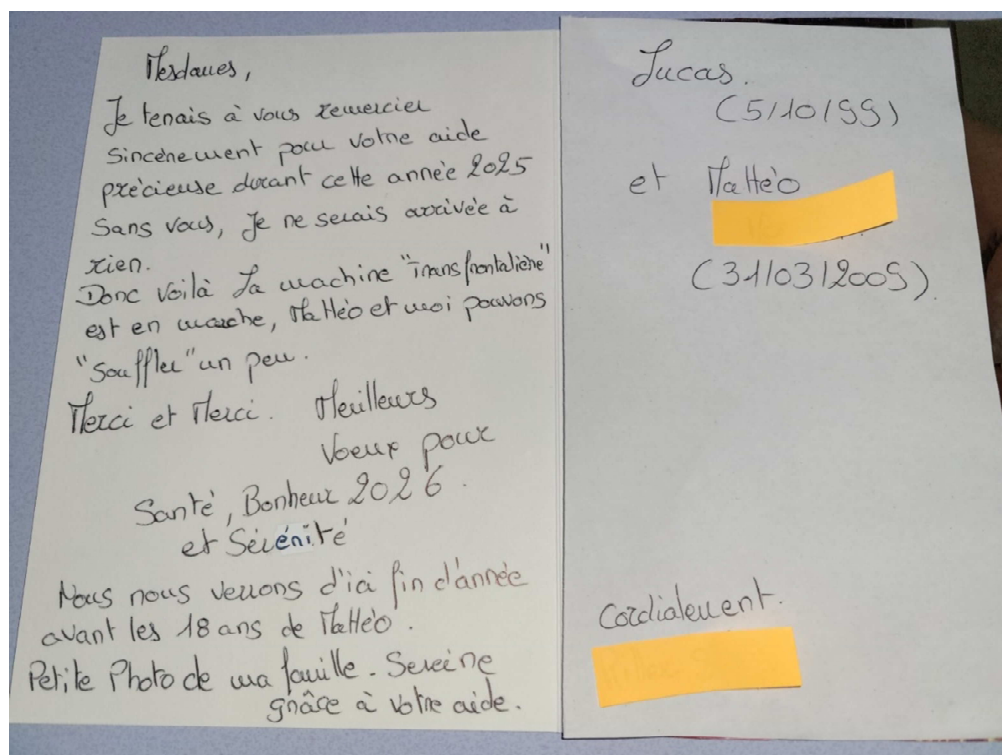 Mesdames,
Je tenais à vous remercier
sincèrement pour votre aide
précieuse durant cette année 2025
Sans vous, Je ne serais arrivée à
rien.
Donc voilà la machine "transfrontalière"
est en marche, Mattéo et moi pouvons
"souffler" un peu.
Merci et Merci. Meilleurs
Voeux pour
Santé, Bonheur 2026.
et Sérénité
Nous nous verrons d'ici fin d'année
avant les 18 ans de Mattéo.
Petite Photo de ma famille. Sereine
grâce à votre aide.
Lucas.
(5/10/99)
et Mattéo
(31/03/2009).
Cordialement.